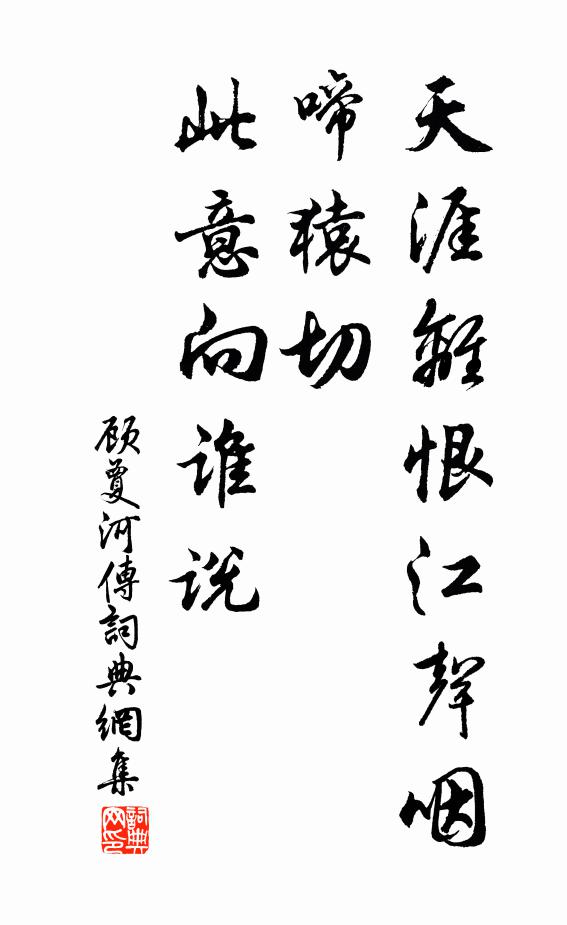 天涯離恨江聲咽
啼猿切
此意向誰説
顾敻河傳詞典網集
詞典网印